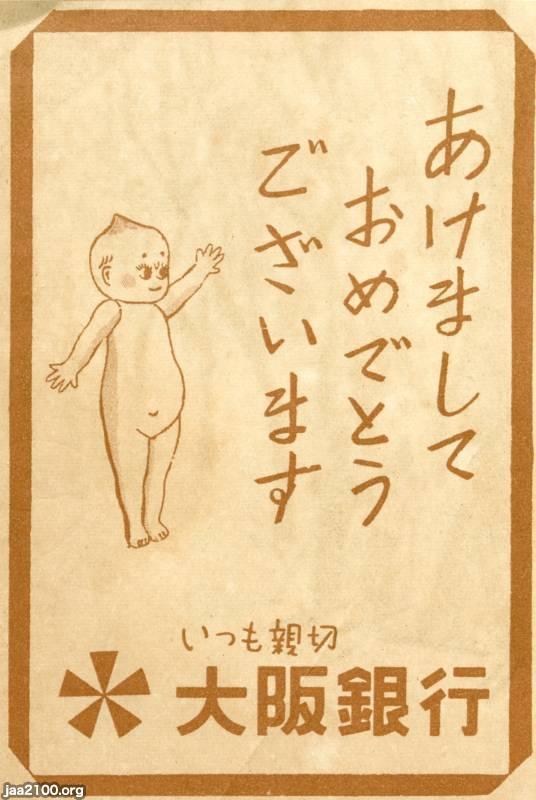 あけまして
おめでとう
ございます
いつも親切
大阪銀行
jaa2100.org